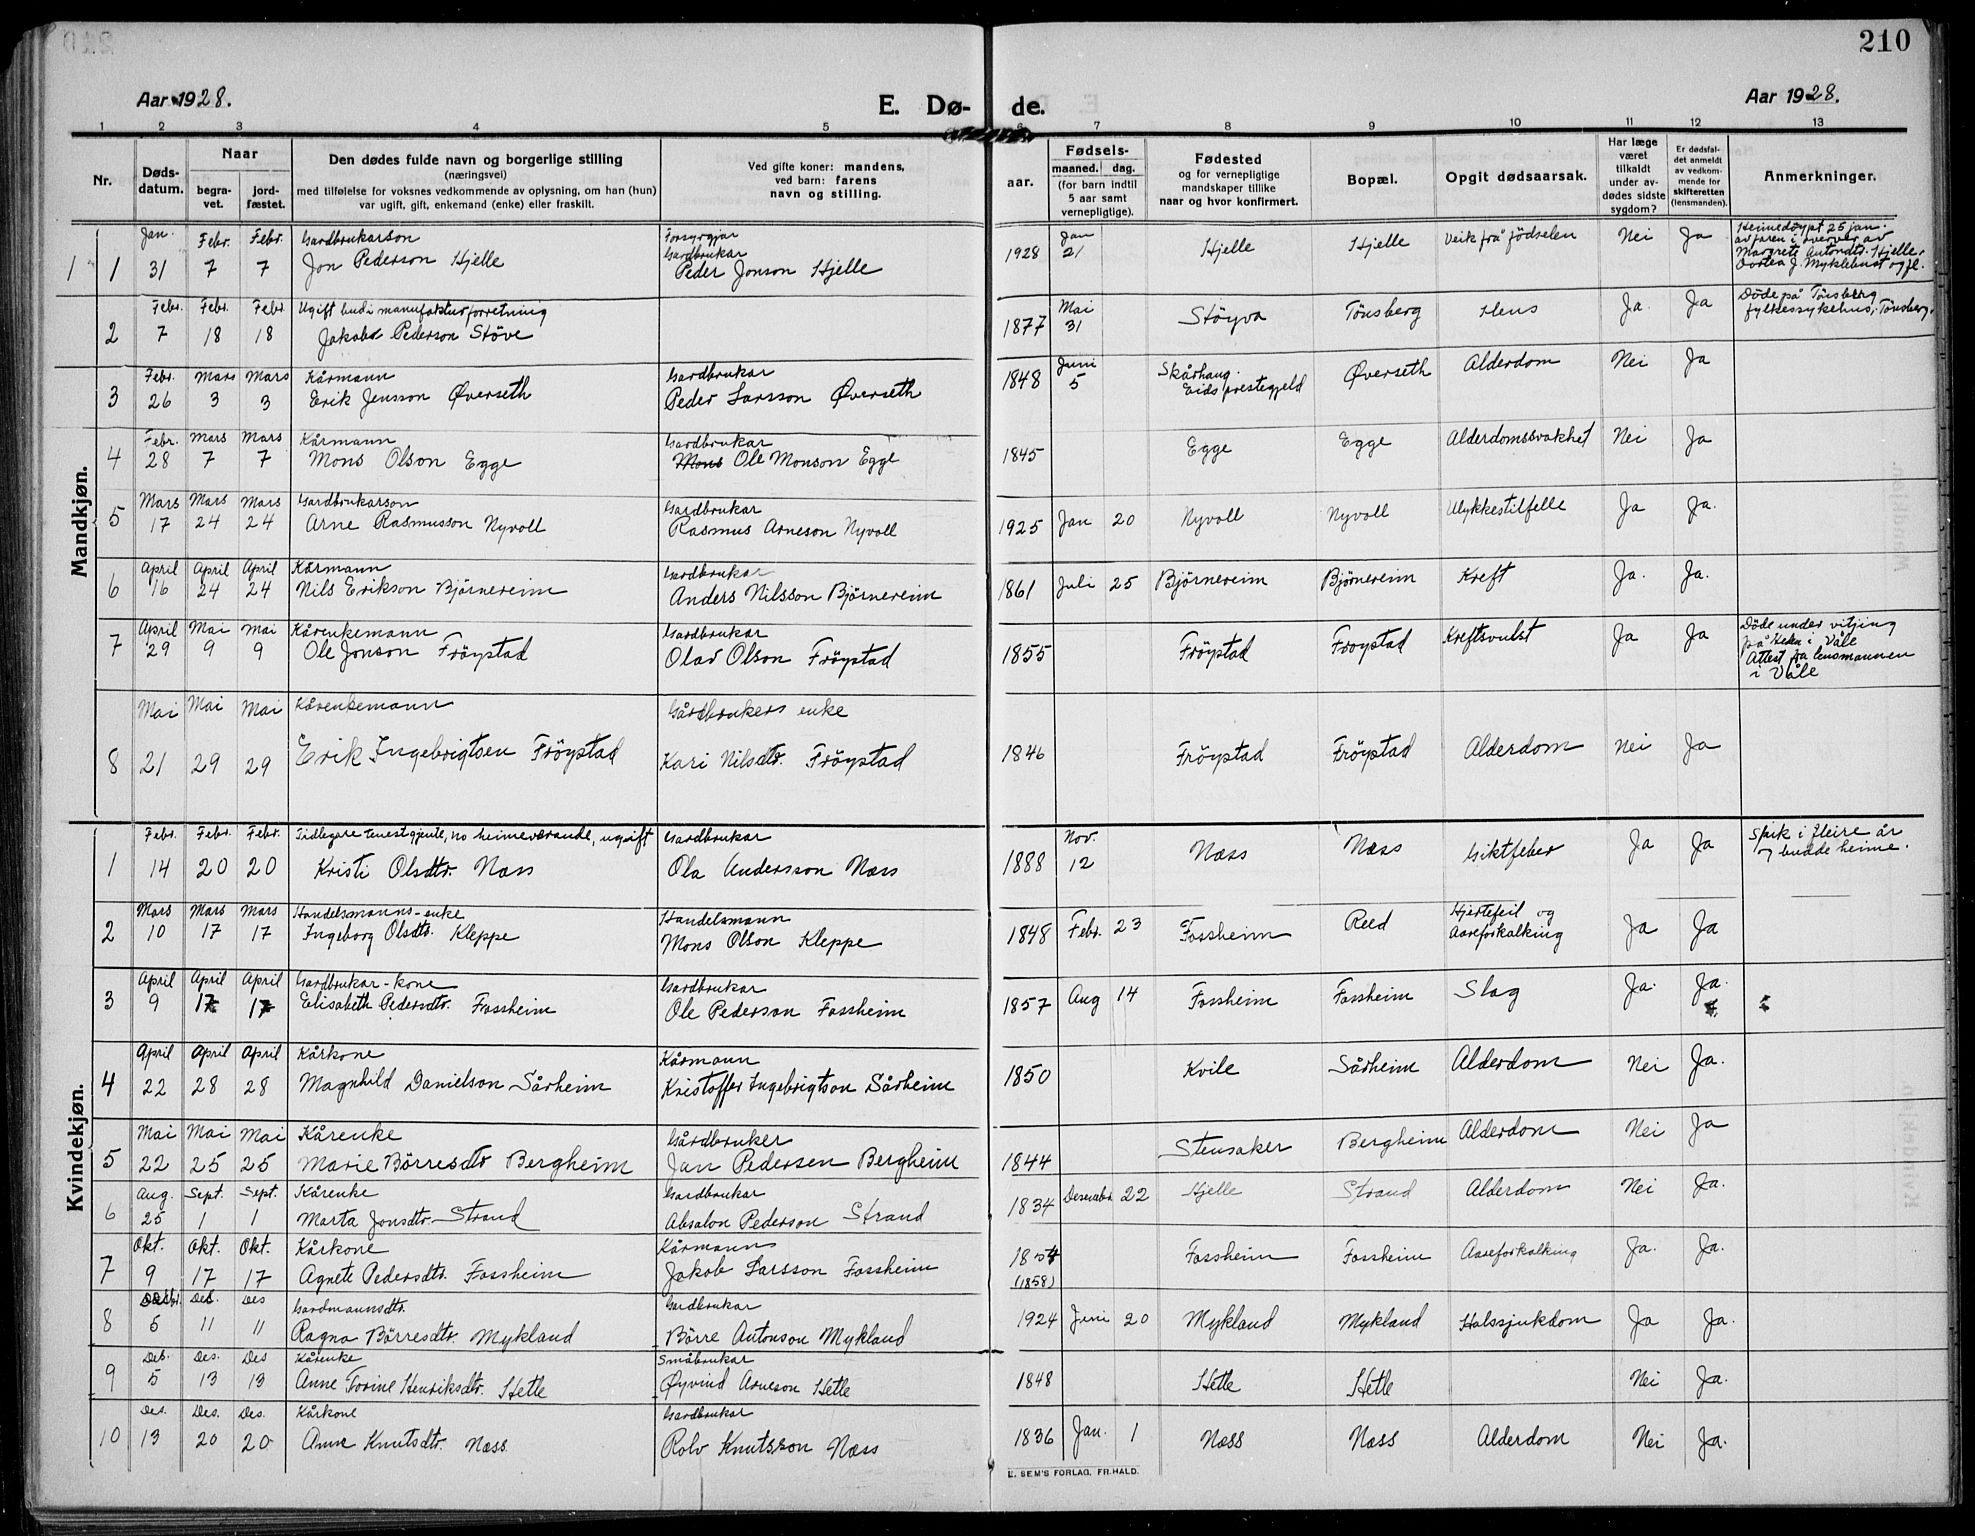 210
Aar 1928.
E. Dø- de.
Aar 1928.
1 2 3 4 5 6 7 8 9 10 11 12 13
Nr.
Døds-datum.
Naar
begra-vet.
jord-fæstet.
Den dødes fulde navn og borgerlige stilling
(næringsvei)
med tilføielse for voksnes vedkommende av oplysning, om han (hun)
var ugift, gift, enkemand (enke) eller fraskilt.
Ved gifte koner: mandens,
ved barn: farens
navn og stilling.
aar.
Fødsels-
maaned. dag.
(for barn indtil
5 aar samt
vernepligtige).
Fødested
og for vernepligtige
mandskaper tillike
naar og hvor konfirmert.
Bopæl.
Opgit dødsaarsak.
Har læge
været
tilkaldt
under av-
dødes sidste
sygdom?
Er dødsfal-
det anmeldt
av vedkom-
mende for
skifteretten
(lensmanden).
Anmerkninger.
Mandkjøn.
1 1 Jan. 31 Febr. 7 Febr. 7 Gardbrukarson Jon Pederson Hjelle Forsyrgjar Gardbrukar Peder Jonson Hjelle 1928 Jan 21 Hjelle Hjelle Veik frå födselen Nei Ja Heimedöypt 25 jan. av faren i overver av Margrete Antondtr. Hjelle, Dortea J. Myklebust og fl.
2 Febr. 7 Febr. 18 Febr. 18 Ugift bud i manufakturforretning Jakob Pederson Stöve 1877 Mai 31 Stöyva Tönsberg Ilens Ja. Ja Döde på Tönsberg fylkessykehus, Tönsberg.
3 Febr. 26 Mars 3 Mars 3 Kårmann Erik Jensson Øverseth Gardbrukar Peder Larsson Øverseth 1848 Juni 5 Skårhaug. Eids prestegjeld Øverseth Alderdom Nei Ja
4 Febr. 28 Mars 7 Mars 7 Kårmann Mons Olson Egge Gardbrukar Mons Ole Monson Egge 1845 Egge Egge Alderdomssvakhet Nei Ja
5 Mars 17 Mars 24 Mars 24 Gardbrukarson Arne Rasmusson Nyvoll Gardbrukar Rasmus Arneson Nyvoll 1925 Jan 20 Nyvoll Nyvoll Ulykkestilfelle Ja Ja.
6 April 16 April 24 April 24 Kårmann Nils Erikson Bjørnereim Gardbrukar Anders Nilsson Bjørnereim 1861 Juli 25 Bjørnereim Bjørnereim Kreft Ja. Ja.
7 April 29 Mai 9 Mai 9 Kårenkemann Ole Jonson Fröystad Gardbrukar Olav Olson Fröystad 1855 Fröystad Froystad Kreftsvulst Ja Ja Döde under vitjing på i Våle Attest fra lensmannen i Våle
8 Mai 21 Mai 29 Mai 29 Kårenkemann Erik Ingebrigtsen Fröystad Gårdbrukers enke Kari Nilsdtr. Fröystad 1846 Fröystad Fröystad Alderdom Nei Ja
Kvindekjøn.
1 Febr. 14 Febr. 20 Febr. 20 Tidlegare tenestgjente, no heimeverande, ugift Kristi Olsdtr. Næss Gardbrukar Ola Andersson Næss 1888 Nov. 12 Næss Næss Giktfeber Ja Ja Sjuk i fleire år og budde heime.
2 Mars 10 Mars 17 Mars 17 Handelsmanns-enke Ingeborg Olsdtr. Kleppe Handelsmann Mons Olson Kleppe 1848 Febr. 23 Fossheim Reed Hjertefeil og Aareforkalking Ja Ja
3 April 9 April 17 April 17 Gardbrukar-kone Elisabeth Pedersdtr. Fossheim Gardbrukar Ole Pederson Fossheim 1857 Aug 14 Fossheim Fossheim Slag Ja. Ja.
4 April 22 April 28 April 28 Kårkone Magnhild Danielson Sårheim Kårmann Kristoffer Ingebrigtson Sårheim 1850 Kvile Sårheim Alderdom Nei Ja.
5 Mai 22 Mai 25 Mai 25 Kårenke Marie Börresdtr Bergheim Gårdbruker Jan Pedersen Bergheim 1844 Stensaker Bergheim Alderdom Nei Ja
6 Aug. 25 Sept. 1 Sept. 1 Kårenke Marta Jonsdtr. Strand Gardbrukar Absalon Pederson Strand 1834 Desembr. 22 Hjelle Strand Alderdom Nei Ja.
7 Okt. 9 Okt. 17 Okt. 17 Kårkone Agnete Pedersdtr. Fossheim Kårmann Jakob Larsson Fossheim 1854 (1858) Fossheim Fossheim Aareforkalking Ja. Ja.
8 5 Des. 11 Des 11 Gardmannsdtr. Ragna Börresdtr. Mykland Gardbrukar Börre Antonson Mykland 1924 Juni 20 Mykland Mykland Halssjukdom Ja Ja.
9 Des. 5 Des. 13 Des 13 Kårenke Anne Torine Henriksdtr. Hetle Småbrukar Øyvind Arneson Hetle 1848 Hetle Hetle Nei Ja.
10 Des. 13 Des. 20 Des. 20 Kårkone Anne Knutsdtr. Næss. Gardbrukar Rolv Knutsson Næss 1836 Jan. 1 Næss Næss Alderdom Nei Ja.
E. SEM'S FORLAG, FR.HALD.